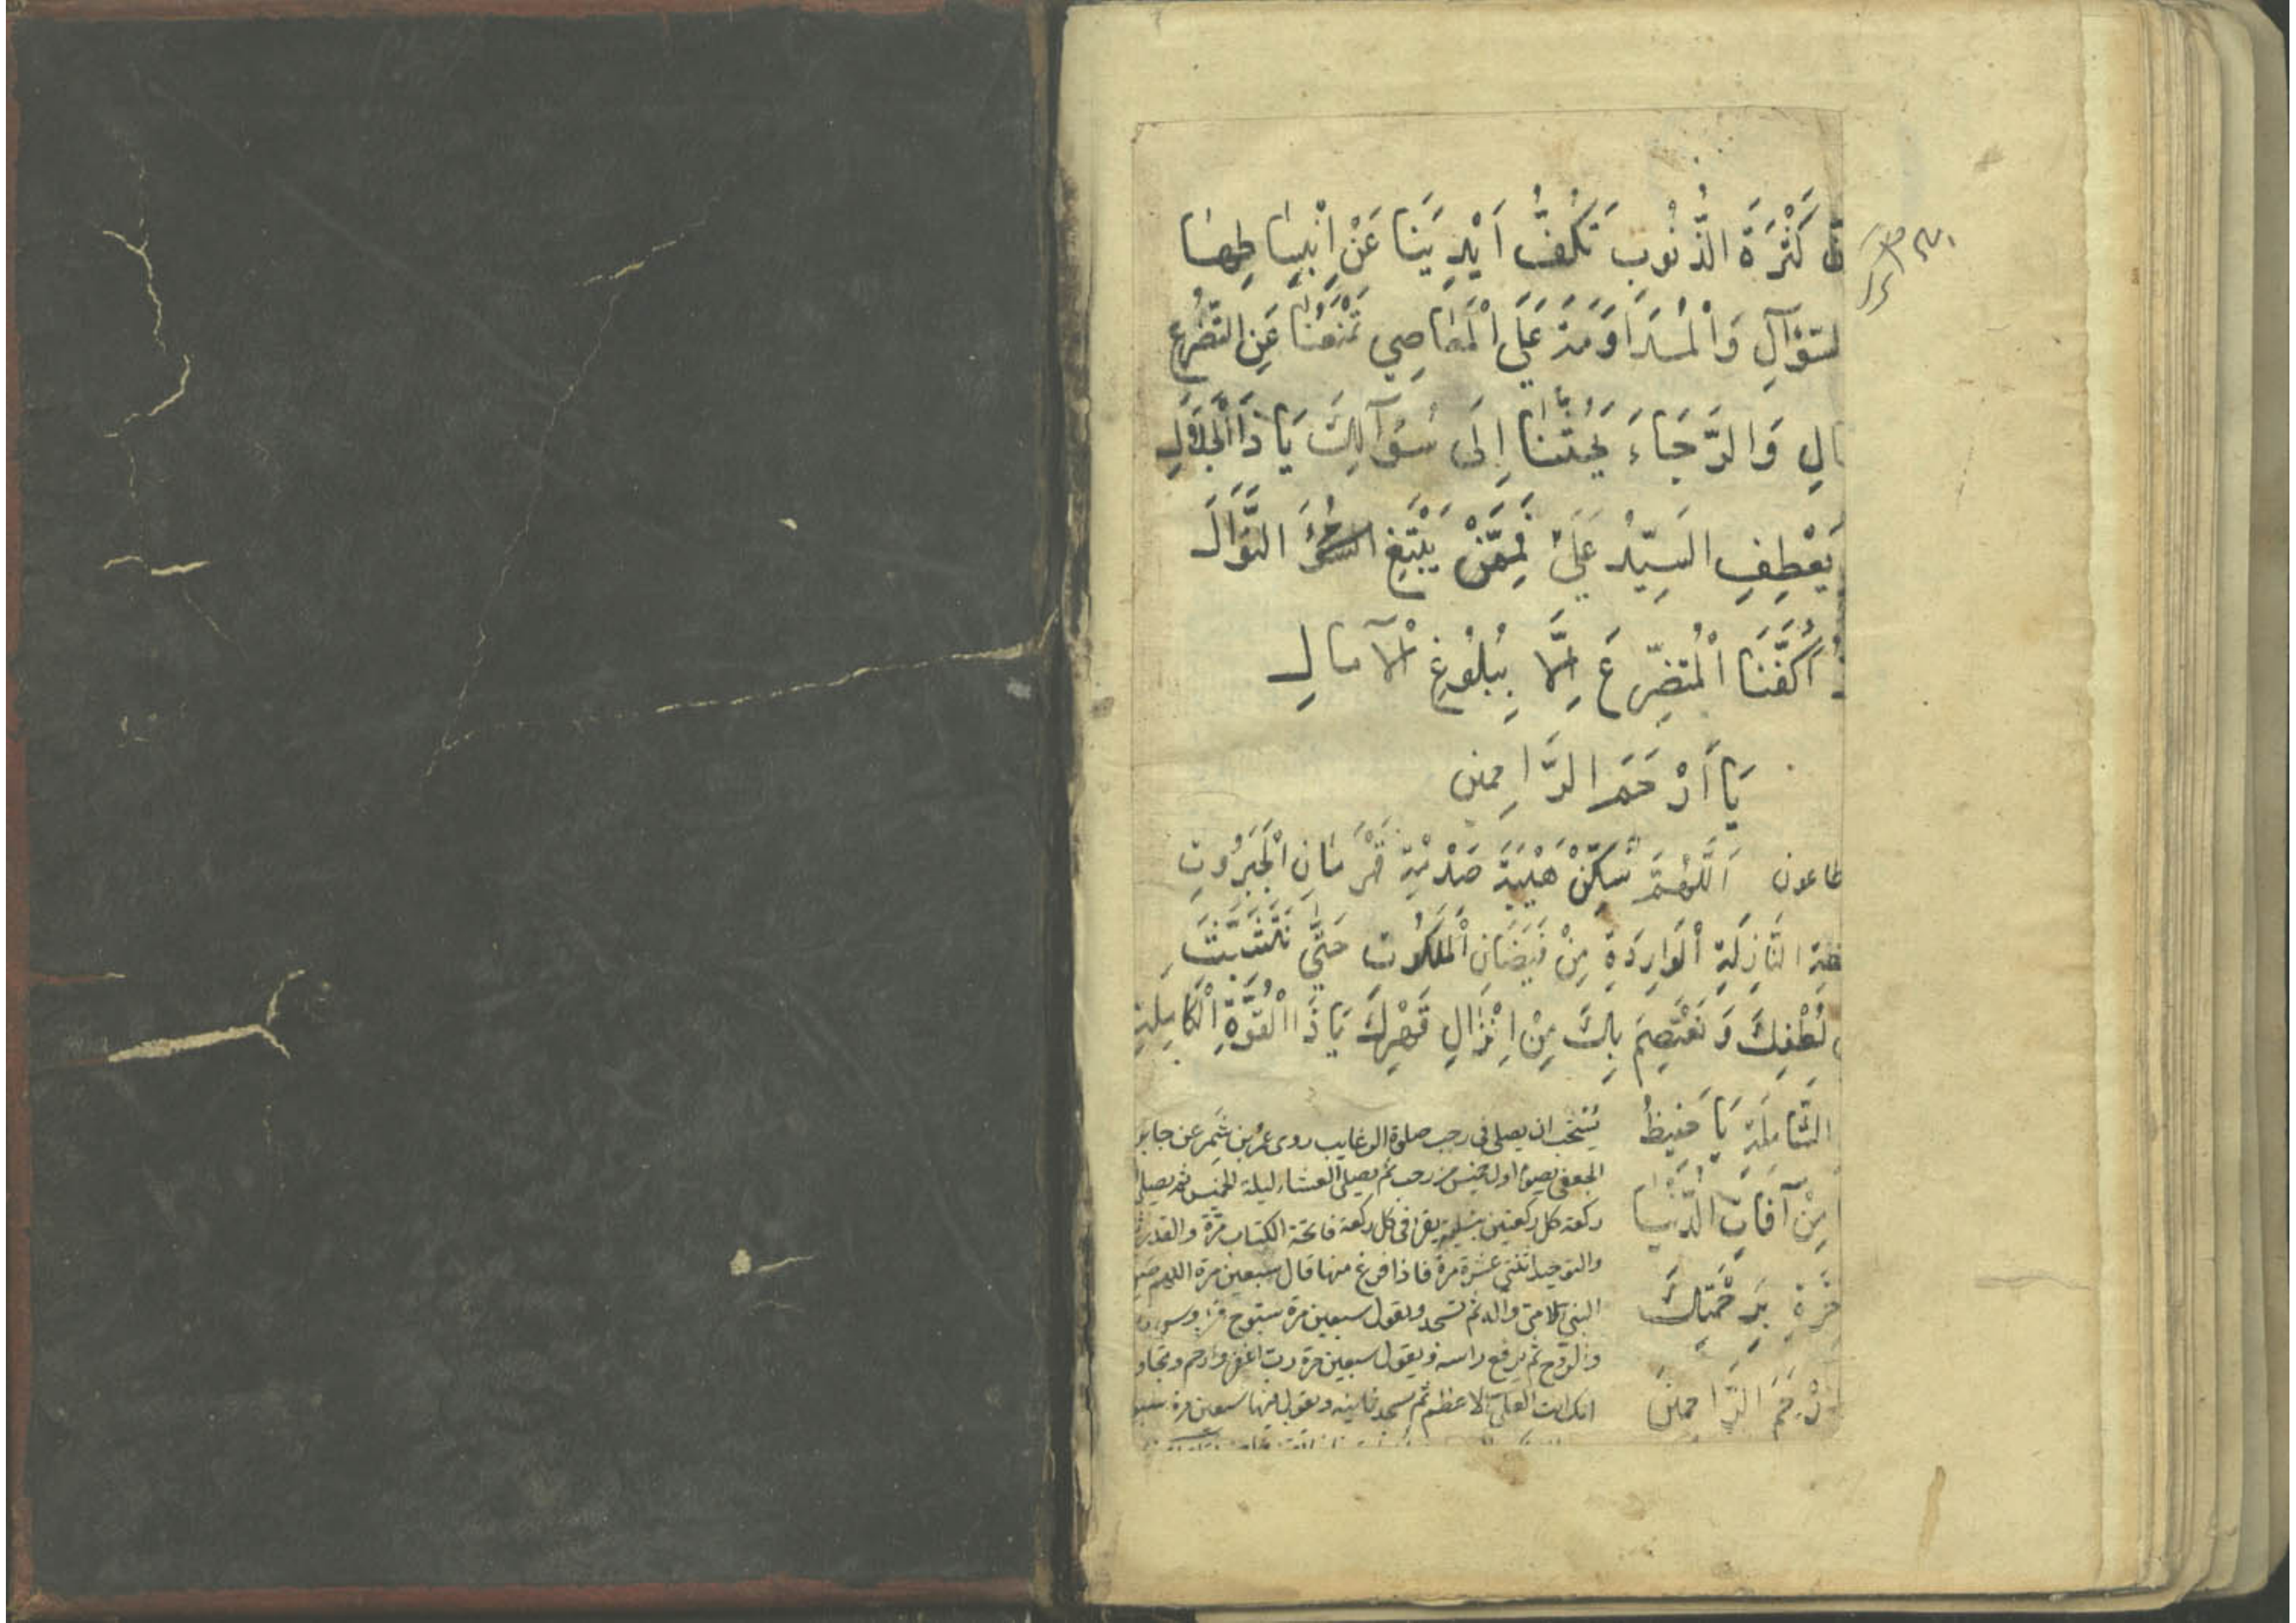 كَثْرَةَ الذُّنُوبِ تَكُفُّ اَيْدِيَنَا عَنْ اِنْبِسَاطِهَا
السُّؤَآلِ وَالْمُدَاوَمَةَ عَلَى الْمَعَاصِي تَمْنَعُنَا عَنِ التَّضَرُّعِ
وَالرَّجَاءَ يَحُثُّنَا اِلَى سُؤَآلِكَ يَا ذَا الْجَلَالِ
يَعْطِفِ السَّيِّدُ عَلَى فَمِمَّنْ يَبْتَغِ النَّوَالَ
اَكُفَّنَا الْمُتَضَرِّعَ اِلَّا بِبُلُوغِ الْآمَالِ
يَا اَرْحَمَ الرَّاحِمِينَ
طاعون اَللّٰهُمَّ سَكِّنْ هَيْبَةَ صَدْمَةِ قَهْرَمَانِ الْجَبَرُوتِ
النَّازِلَةِ الْوَارِدَةِ مِنْ فَيَضَانِ الْمَلَكُوتِ حَتَّى نَتَشَبَّثَ
لُطْفِكَ وَنَعْتَصِمَ بِكَ مِنْ اِنْزَالِ قَهْرِكَ يَا ذَا الْقُوَّةِ الْكَامِلَةِ
الشَّامِلَةِ يَا حَفِيظُ
مِنْ آفَاتِ الدُّنْيَا
بِرَحْمَتِكَ
الرَّاحِمِينَ
يُسْتَحَبّ ان يصلى فى رجب صلوة الرغايب روى عمرو بن شمر عن جابر
الجعفى يصوم اول خميس من رجب ثم يصلى العشاء ليلة الخميس ثم يصلى
ركعة كل ركعتين بتسليمة يقرا فى كل ركعة فاتحة الكتاب مرّة والقدر
والتوحيد اثنتى عشرة مرة فاذا فرغ منها قال سبعين مرة اللهم صل
النبى الامى وآله ثم تسجد ويقول سبعين مرة سبّوح قدّوس
والروح ثم يرفع راسه ويقول سبعين مرة رب اغفر وارحم وتجاوز
انك انت العلى الاعظم ثم يسجد ثانية ويقول فيها سبعين مرة